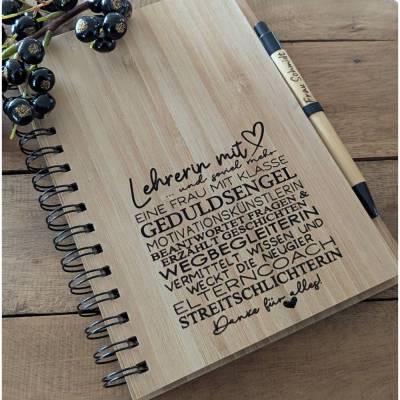 Lehrerin mit
... und soviel mehr
EINE FRAU MIT KLASSE
GEDULDSENGEL
MOTIVATIONSKÜNSTLERIN
BEANTWORTET FRAGEN &
ERZÄHLT GESCHICHTEN
WEGBEGLEITERIN
VERMITTELT WISSEN UND
WECKT DIE NEUGIER
ELTERNCOACH
STREITSCHLICHTERIN
Danke für alles!
Frau Schmidt